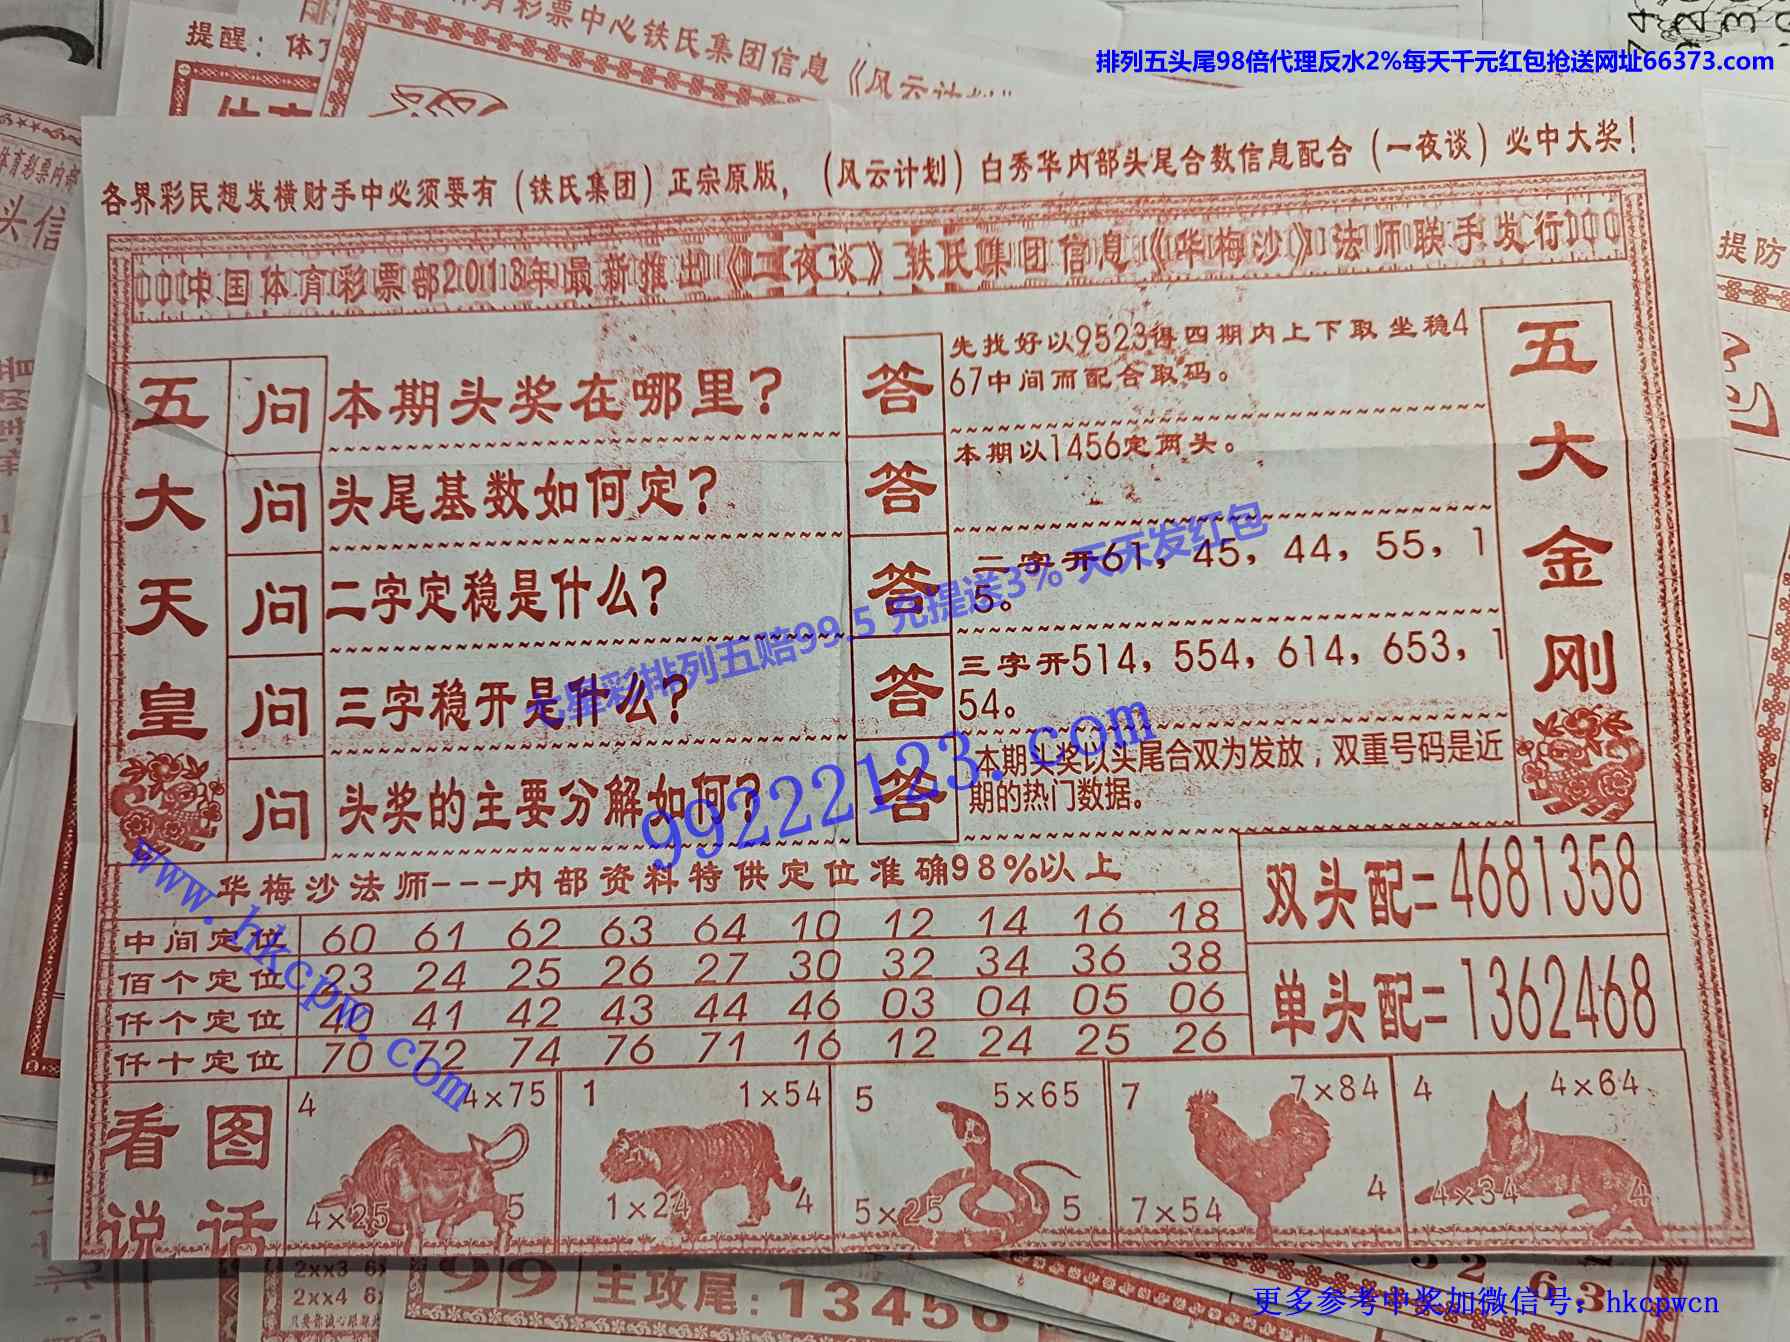 排列五头尾98倍代理反水2%每天千元红包抢送网址66373.com
提醒：体
中心铁氏集团信息《风云计划》
各界彩民想发横财手中必须要有（铁氏集团）正宗原版，（风云计划）白秀华内部头尾合数信息配合（一夜谈）必中大奖！
中国体育彩票部2013年最新推出《一夜谈》铁氏集团信息《华梅沙》法师联手发行
提防
五大天皇
问 本期头奖在哪里？
答 先找好以9523得四期内上下取坐稳4
67中间而配合取码。
问 头尾基数如何定？
答 本期以1456定两头。
问 二字定稳是什么？
答 二字开61，45，44，55，1
5。
问 三字稳开是什么？
答 三字开514，554，614，653，1
54。
问 头奖的主要分解如何？
答 本期头奖以头尾合双为发放；双重号码是近
期的热门数据。
五大金刚
七星彩排列五赔99.5 充提送3% 天天发红包
99222123.com
www.hkcpw.com
华梅沙法师---内部资料特供定位准确98%以上
中间定位 60 61 62 63 64 10 12 14 16 18
佰个定位 23 24 25 26 27 30 32 34 36 38
仟个定位 40 41 42 43 44 46 03 04 05 06
仟十定位 70 72 74 76 71 16 12 24 25 26
双头配=4681358
单头配=1362468
看图说话
4 4×75
4×25 5
1 1×54
1×24 4
5 5×65
5×25 5
7 7×84
7×54 4
4 4×64
4×34 4
2xx3 6
2xx4 6
99 主攻尾：13456
更多参考中奖加微信号：hkcpwcn